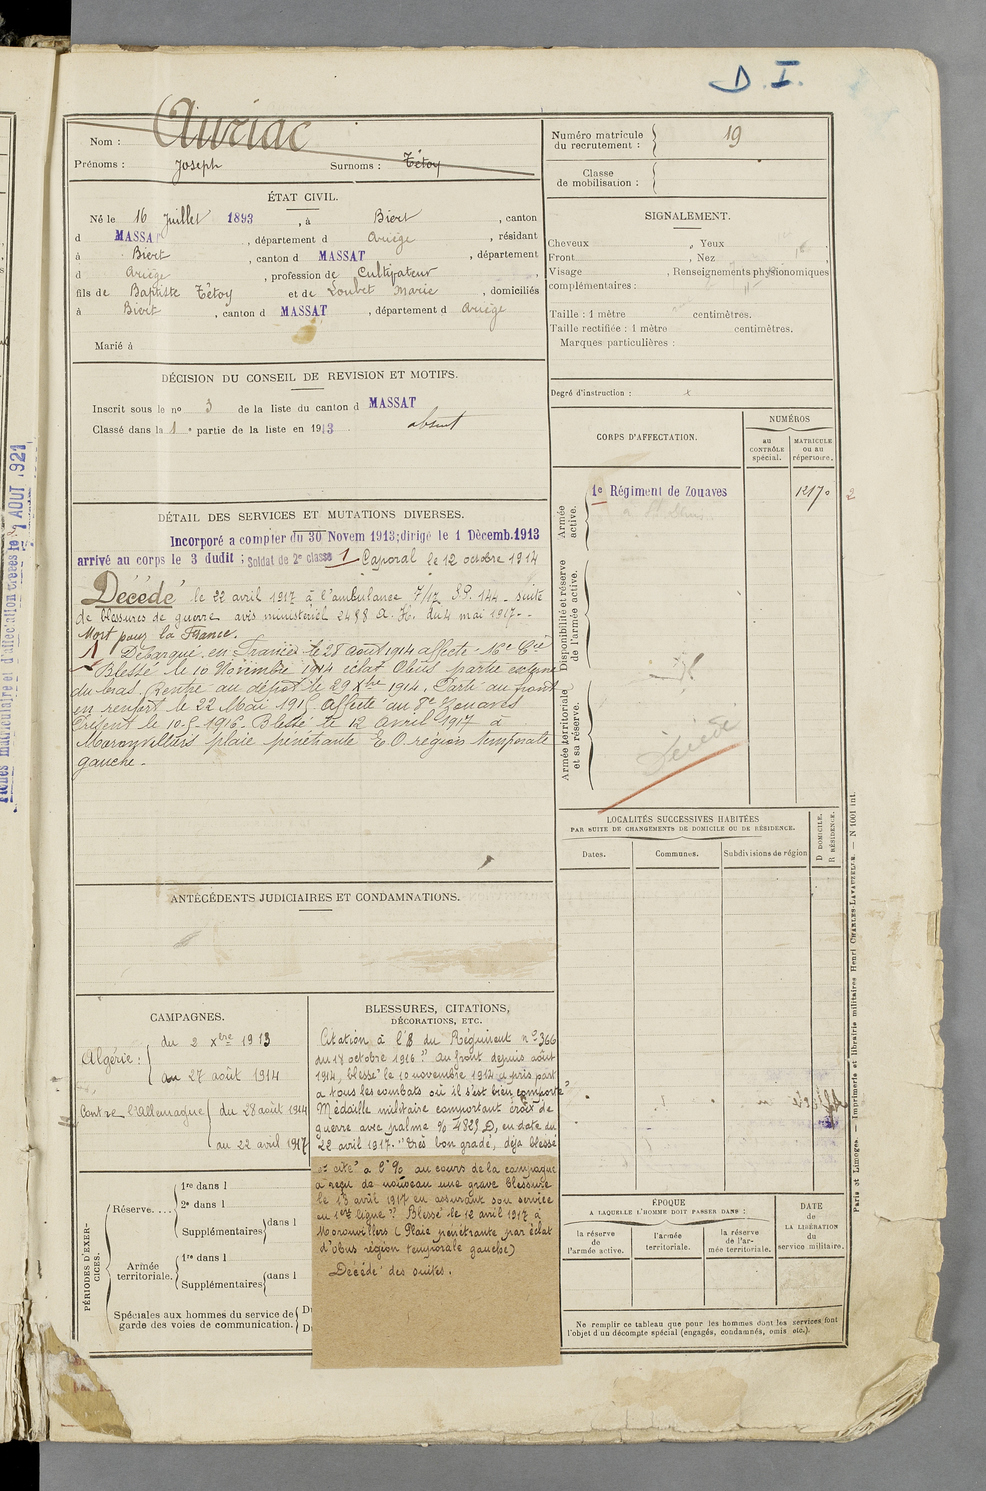 D. I.
Nom : Auriac
Prénoms : Joseph Surnoms : Tétoy
Numéro matricule du recrutement : 19
Classe de mobilisation :
ÉTAT CIVIL.
Né le 16 Juillet 1893, à Biert, canton
d MASSAT, département d Ariège, résidant
à Biert, canton d MASSAT, département
d Ariège, profession de Cultivateur,
fils de Baptiste Tétoy et de Loubet Marie, domiciliés
à Biert, canton d MASSAT, département d Ariège
Marié à
SIGNALEMENT.
Cheveux , Yeux ,
Front , Nez
Visage , Renseignements physionomiques
complémentaires :
Taille : 1 mètre centimètres.
Taille rectifiée : 1 mètre centimètres.
Marques particulières :
Degré d'instruction : x
DÉCISION DU CONSEIL DE REVISION ET MOTIFS.
Inscrit sous le no 3 de la liste du canton d MASSAT
Classé dans la 1e partie de la liste en 1913 absent
CORPS D'AFFECTATION.
NUMÉROS
au CONTRÔLE spécial.
MATRICULE ou au répertoire.
Armée active.
1e Régiment de Zouaves 12170 2
Disponibilité et réserve de l'armée active.
Armée territoriale et sa réserve.
Décédé
DÉTAIL DES SERVICES ET MUTATIONS DIVERSES.
Incorporé a compter du 30 Novem 1913; dirigé le 1 Décemb. 1913
arrivé au corps le 3 dudit ; Soldat de 2e classe 1 Caporal le 12 octobre 1914
Décédé le 22 avril 1917 à l'ambulance 7/17 S.P. 144 - suite
de blessures de guerre avis ministériel 2498 A. H. du 4 mai 1917.-
Mort pour la France.
Débarqué en France le 28 août 1914 affecté 16e Cie
Blessé le 10 Novembre 1914 éclat Obus partie externe
du bras. Rentré au dépôt le 29 Xbre 1914. Parti au front
en renfort le 22 Mai 1915. Affecté au 8e Zouaves
Présent le 10-5-1916- Blessé le 12 avril 1917 à
Moronvilliers plaie pénétrante E.O. région temporale
gauche.-
LOCALITÉS SUCCESSIVES HABITÉES
PAR SUITE DE CHANGEMENTS DE DOMICILE OU DE RÉSIDENCE.
Dates. Communes. Subdivisions de région
D DOMICILE.
R RÉSIDENCE.
ANTÉCÉDENTS JUDICIAIRES ET CONDAMNATIONS.
CAMPAGNES.
Algérie : du 2 Xbre 1913
au 27 août 1914
Contre l'Allemagne du 28 août 1914
au 22 avril 1917
BLESSURES, CITATIONS,
DÉCORATIONS, ETC.
Citation à l'O du Régiment no 366
du 18 octobre 1916 " Au front depuis août
1914, blessé le 10 novembre 1914 a pris part
à tous les combats où il s'est bien comporté"
Médaille militaire comportant croix de
guerre avec palme % 4825 D, en date du
22 avril 1917. "très bon gradé, déjà blessé
et cité à l'% au cours de la campagne
a reçu de nouveau une grave blessure
le 13 avril 1917 en assurant son service
en 1ere ligne" Blessé le 12 avril 1917 à
Moronvilliers (Plaie pénétrante par éclat
d'obus région temporale gauche)
Décédé des suites.
PÉRIODES D'EXERCICES.
Réserve....
1re dans l
2e dans l
Supplémentaires dans l
Armée territoriale.
1re dans l
Supplémentaires dans l
Spéciales aux hommes du service de garde des voies de communication.
ÉPOQUE
A LAQUELLE L'HOMME DOIT PASSER DANS :
la réserve de l'armée active.
l'armée territoriale.
la réserve de l'armée territoriale.
DATE
de
LA LIBÉRATION
du
service militaire.
Ne remplir ce tableau que pour les hommes dont les services font
l'objet d'un décompte spécial (engagés, condamnés, omis etc.).
Paris et Limoges. — Imprimerie et librairie militaires Henri CHARLES-LAVAUZELLE. — N 1001 int.